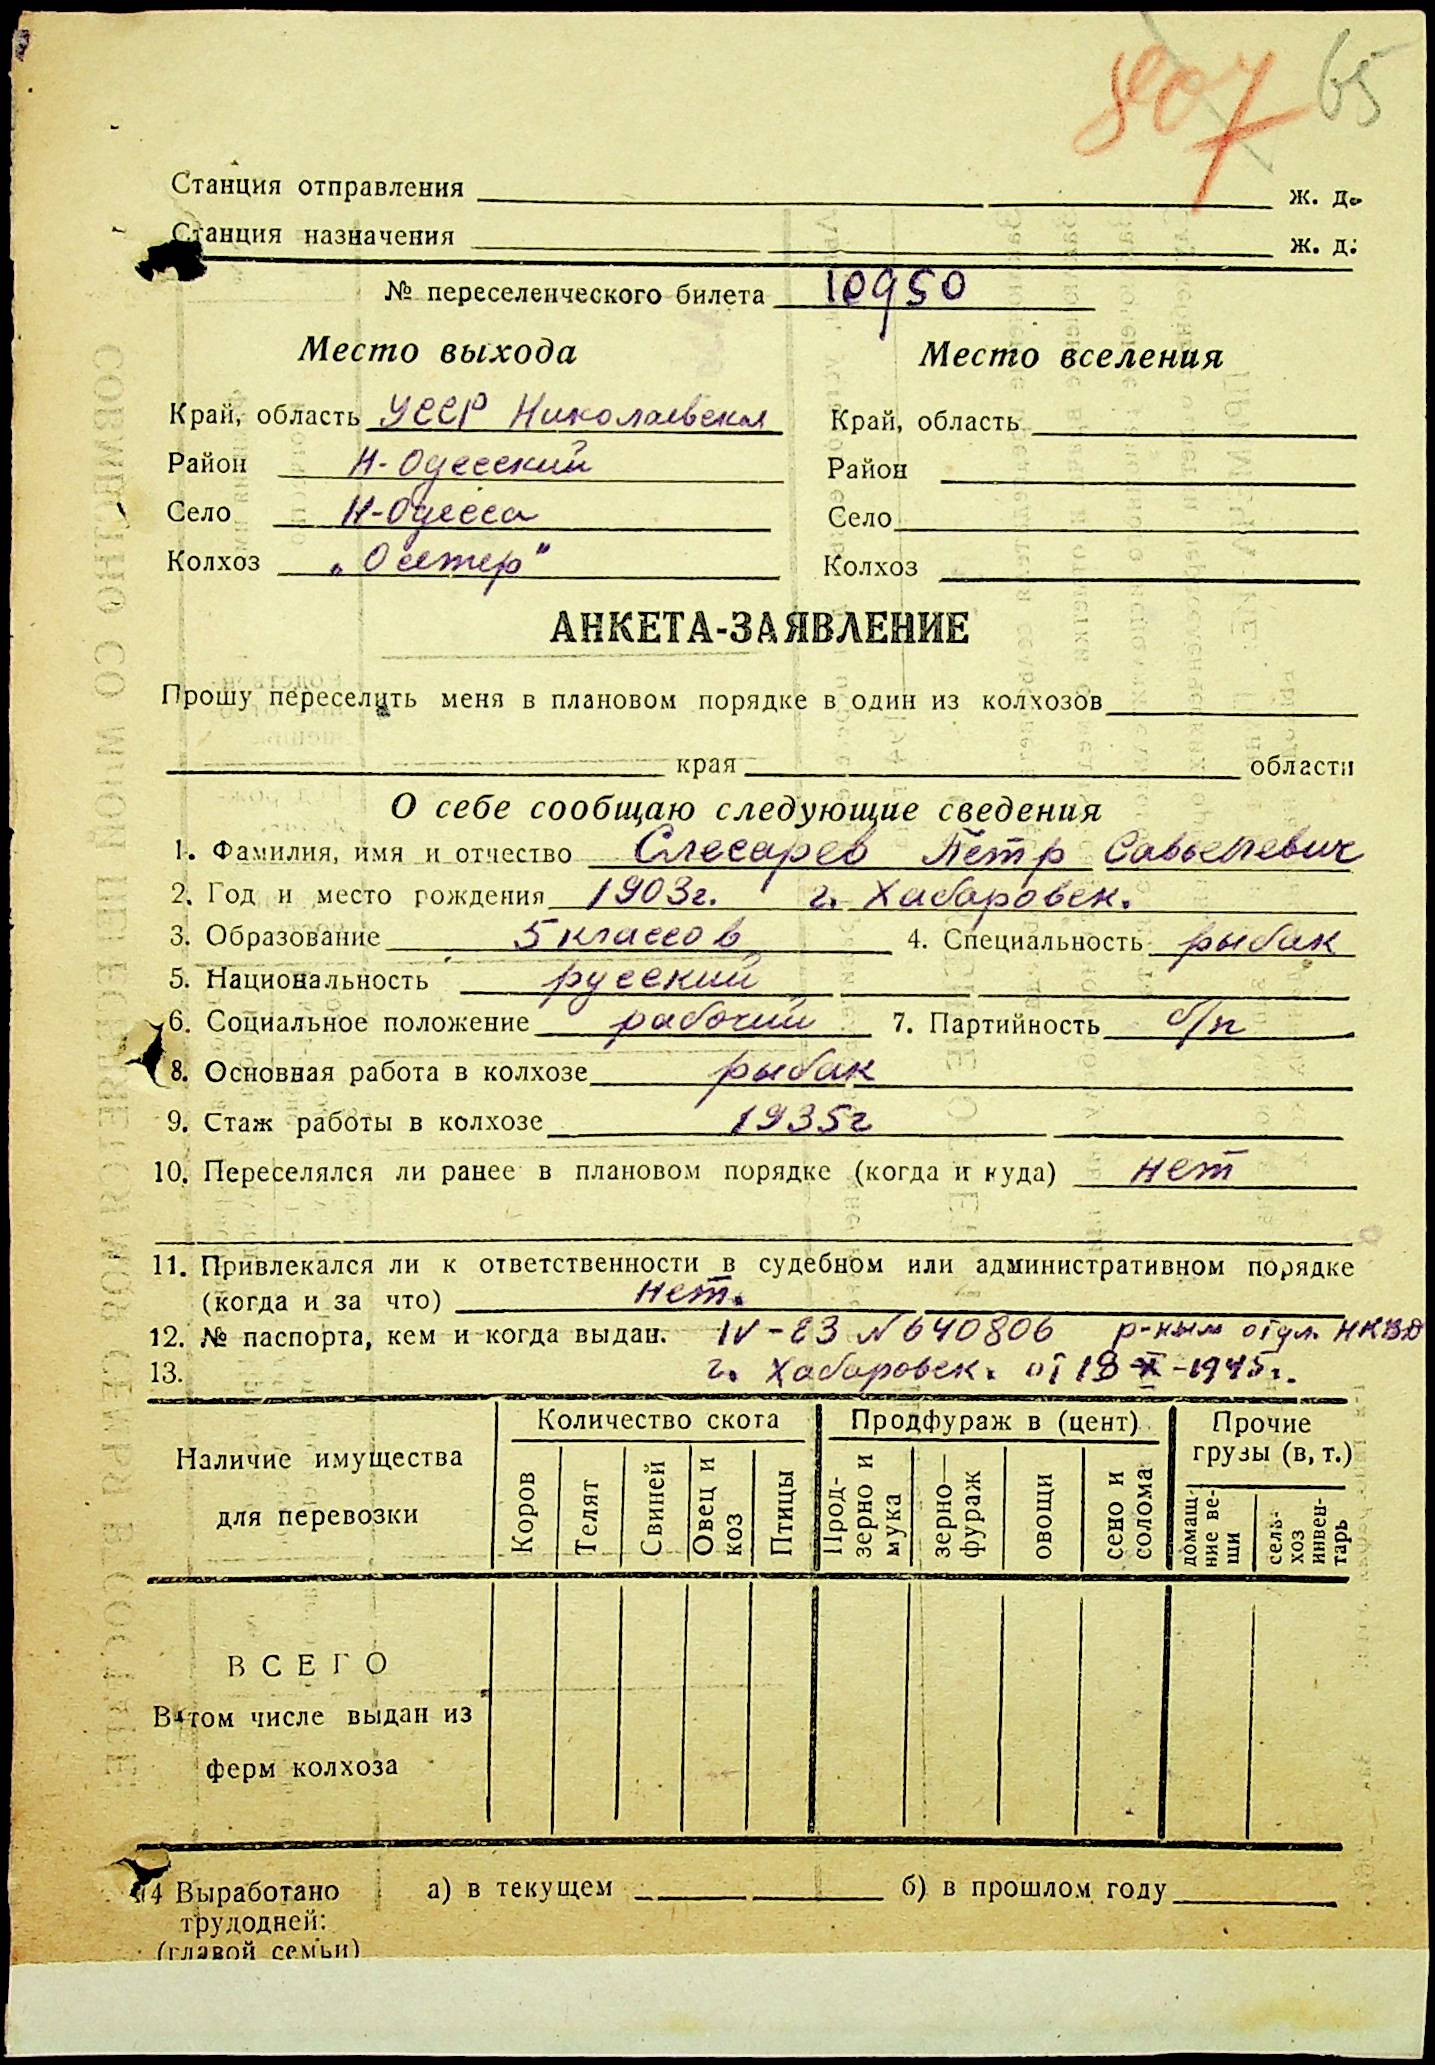 807 65
Станция отправления ж. д.
Станция назначения ж. д.
№ переселенческого билета 10950
Место выхода
Край, область УССР Николаевская
Район Н-Одесский
Село Н-Одесса
Колхоз „Осетер"
Место вселения
Край, область
Район
Село
Колхоз
АНКЕТА-ЗАЯВЛЕНИЕ
Прошу переселить меня в плановом порядке в один из колхозов
края области
О себе сообщаю следующие сведения
1. Фамилия, имя и отчество Слесарев Пётр Савельевич
2. Год и место рождения 1903г. г. Хабаровск.
3. Образование 5 классов 4. Специальность рыбак
5. Национальность русский
6. Социальное положение рабочий 7. Партийность б/п
8. Основная работа в колхозе рыбак
9. Стаж работы в колхозе 1935г
10. Переселялся ли ранее в плановом порядке (когда и куда) нет
11. Привлекался ли к ответственности в судебном или административном порядке
(когда и за что) нет.
12. № паспорта, кем и когда выдан. IV-ЕЗ № 640806 р-ным отдл. НКВД
13. г. Хабаровск. от 18-X-1945г.
Наличие имущества
для перевозки
Количество скота
Коров
Телят
Свиней
Овец и
коз
Птицы
Продфураж в (цент)
Прод-
зерно и
мука
зерно—
фураж
овощи
сено и
солома
Прочие
грузы (в, т.)
домаш-
ние ве-
щи
сель-
хоз
инвен-
тарь
ВСЕГО
В том числе выдан из
ферм колхоза
14 Выработано а) в текущем б) в прошлом году
трудодней:
(главой семьи)